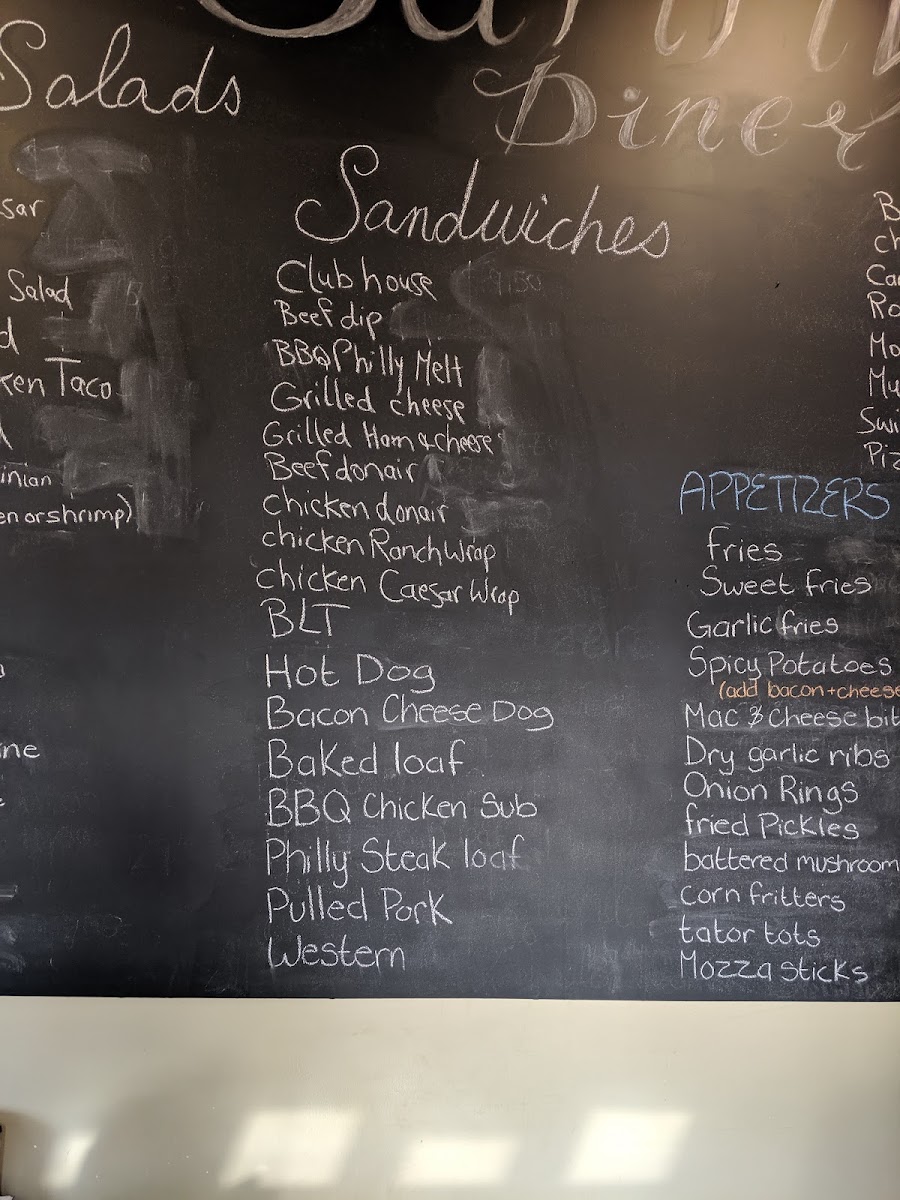 Diner
Salads
Salad
Taco
orshrimp)
Sandwiches
Clubhouse
Beef dip
BBQ Philly Melt
Grilled cheese
Grilled Ham & cheese
Beef donair
Chicken donair
chicken Ranch Wrap
chicken Caesar Wrap
BLT
Hot Dog
Bacon Cheese Dog
Baked loaf
BBQ Chicken Sub
Philly Steak loaf
Pulled Pork
Western
APPETIZERS
fries
Sweet fries
Garlic fries
Spicy Potatoes
(add bacon+cheese
Mac & cheese bit
Dry garlic ribs
Onion Rings
fried Pickles
battered mushroom
corn fritters
tator tots
Mozza sticks